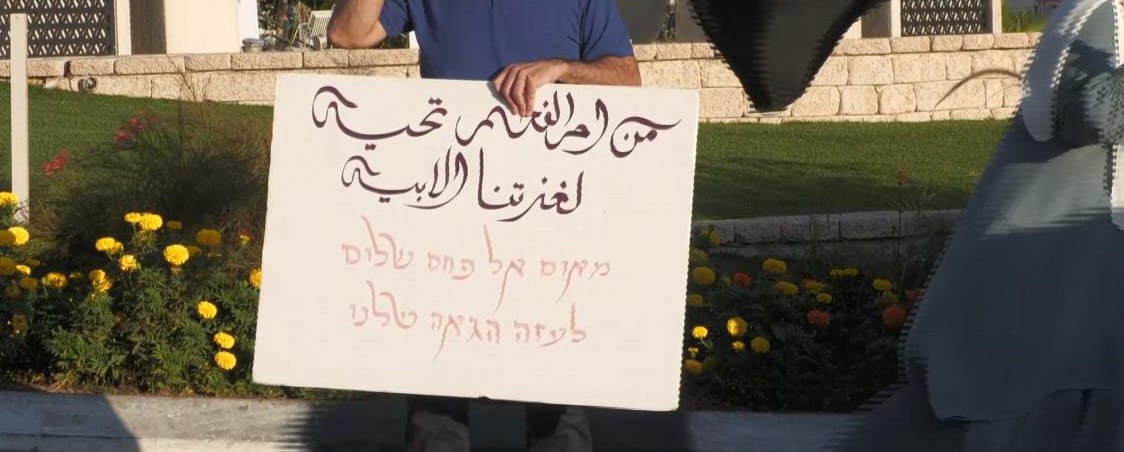 من ام الفحم تحية
لغزتنا الابية
מאום אל פחם שלום
לעזה הגאה שלנו